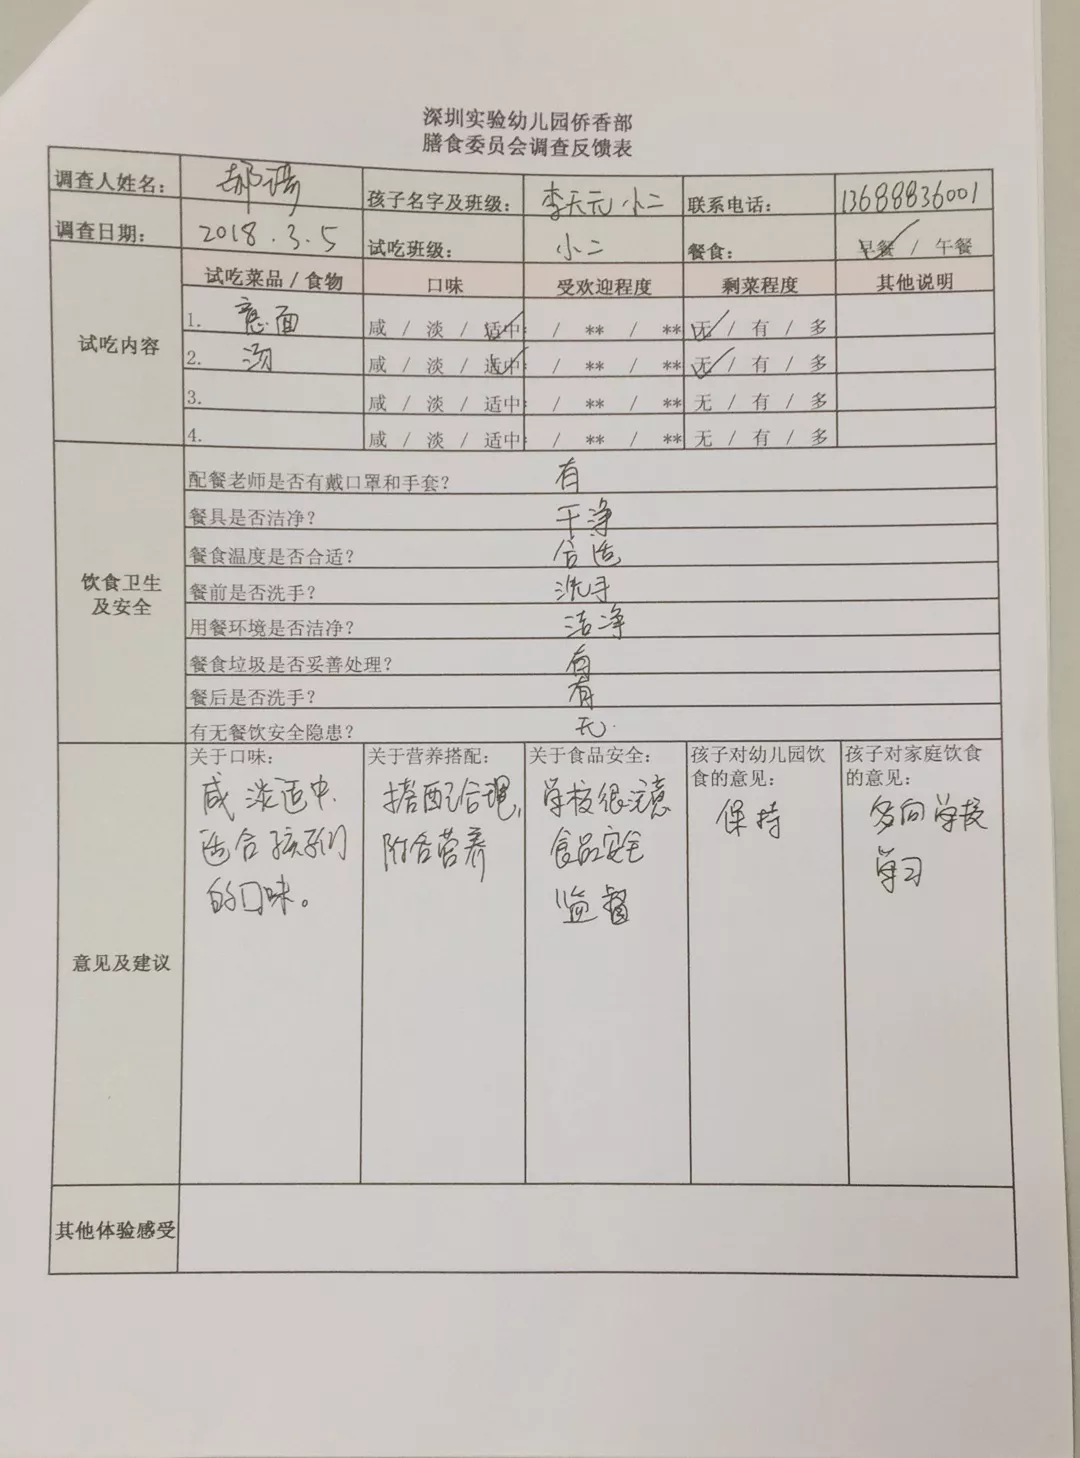 深圳实验幼儿园侨香部
膳食委员会调查反馈表
调查人姓名： 郝 孩子名字及班级： 李天元 小二 联系电话： 13688836001
调查日期： 2018.3.5 试吃班级： 小二 餐食： 早餐 / 午餐
试吃内容 试吃菜品 / 食物 口味 受欢迎程度 剩菜程度 其他说明
1. 意面 咸 / 淡 / 适中 / ** / ** 无 / 有 / 多
2. 汤 咸 / 淡 / 适中 / ** / ** 无 / 有 / 多
3. 咸 / 淡 / 适中 / ** / ** 无 / 有 / 多
4. 咸 / 淡 / 适中 / ** / ** 无 / 有 / 多
饮食卫生
及安全
配餐老师是否有戴口罩和手套？ 有
餐具是否洁净？ 干净
餐食温度是否合适？ 合适
餐前是否洗手？ 洗手
用餐环境是否洁净？ 洁净
餐食垃圾是否妥善处理？ 有
餐后是否洗手？ 有
有无餐饮安全隐患？ 无.
意见及建议
关于口味：
咸淡适中.
适合孩子们
的口味。
关于营养搭配：
搭配合理，
附合营养
关于食品安全：
学校很注意
食品安全
监督
孩子对幼儿园饮
食的意见：
保持
孩子对家庭饮食
的意见：
多向学校
学习
其他体验感受